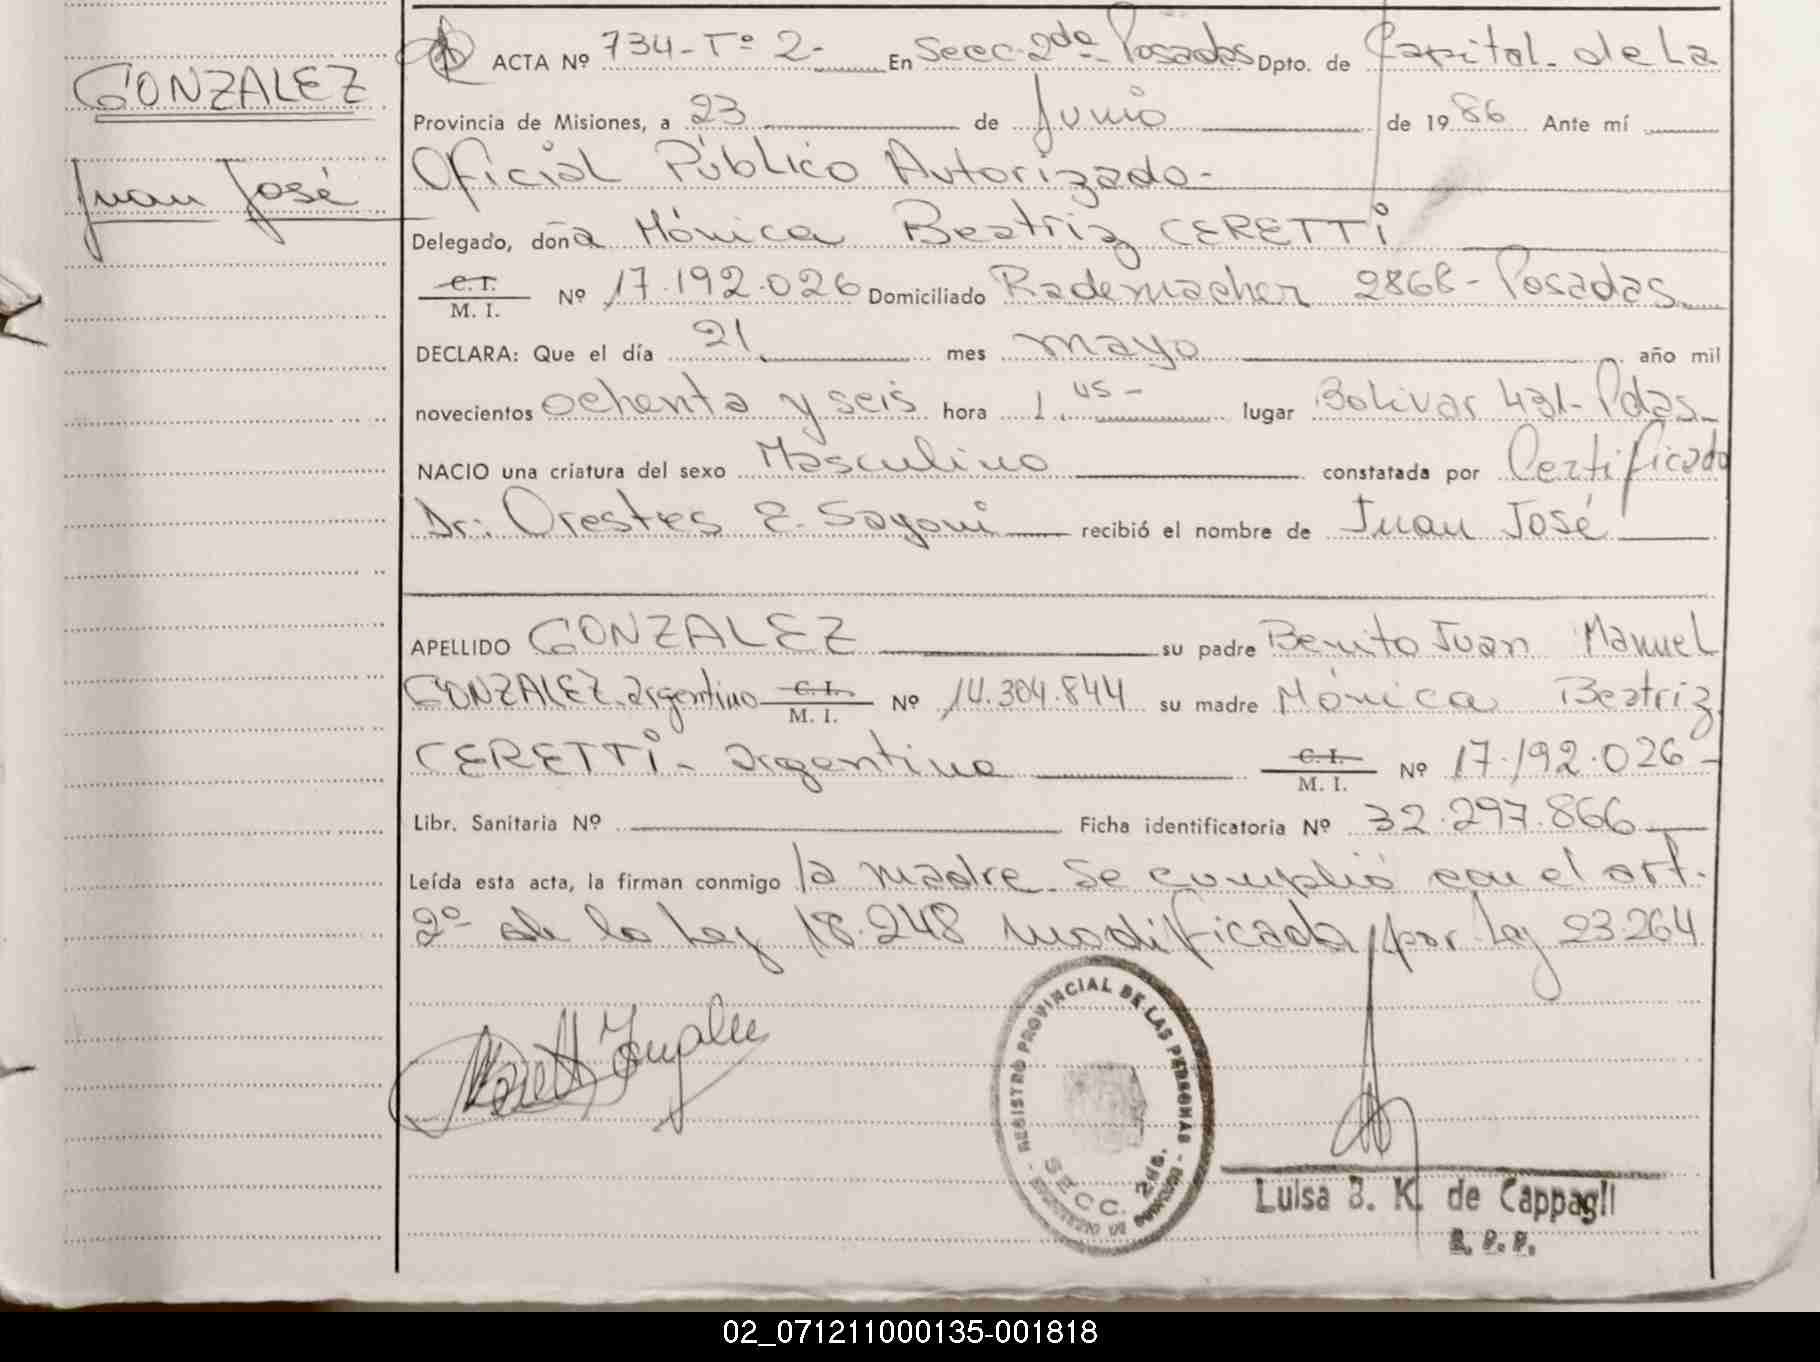 GONZALEZ
Juan José
ACTA Nº 734-Tº 2- En Secc. 2da Posadas Dpto. de Capital. de La
Provincia de Misiones, a 23 de Junio de 1986 Ante mí
Oficial Público Autorizado-
Delegado, doña Mónica Beatriz CERETTI
C.I.
M. I. Nº 17.192.026 Domiciliado Rademacher 2868- Posadas
DECLARA: Que el día 21 mes mayo año mil
novecientos ochenta y seis hora 1.45- lugar Bolivar 431- Pdas
NACIO una criatura del sexo Masculino constatada por Certificado
Dr: Orestes E. recibió el nombre de Juan José
APELLIDO GONZALEZ su padre Benito Juan Manuel
GONZALEZ. argentino C.I. M. I. Nº 14.304.844 su madre Mónica Beatriz
CERETTI- argentina C.I. M. I. Nº 17.192.026-
Libr. Sanitaria Nº Ficha identificatoria Nº 32.297.866
Leída esta acta, la firman conmigo la madre. Se cumplió con el art.
2º de la Ley 18.248 modificada por Ley 23.264
REGISTRO PROVINCIAL DE LAS PERSONAS
SECC. 2da.
Luisa B. K. de Cappagli
02_071211000135-001818